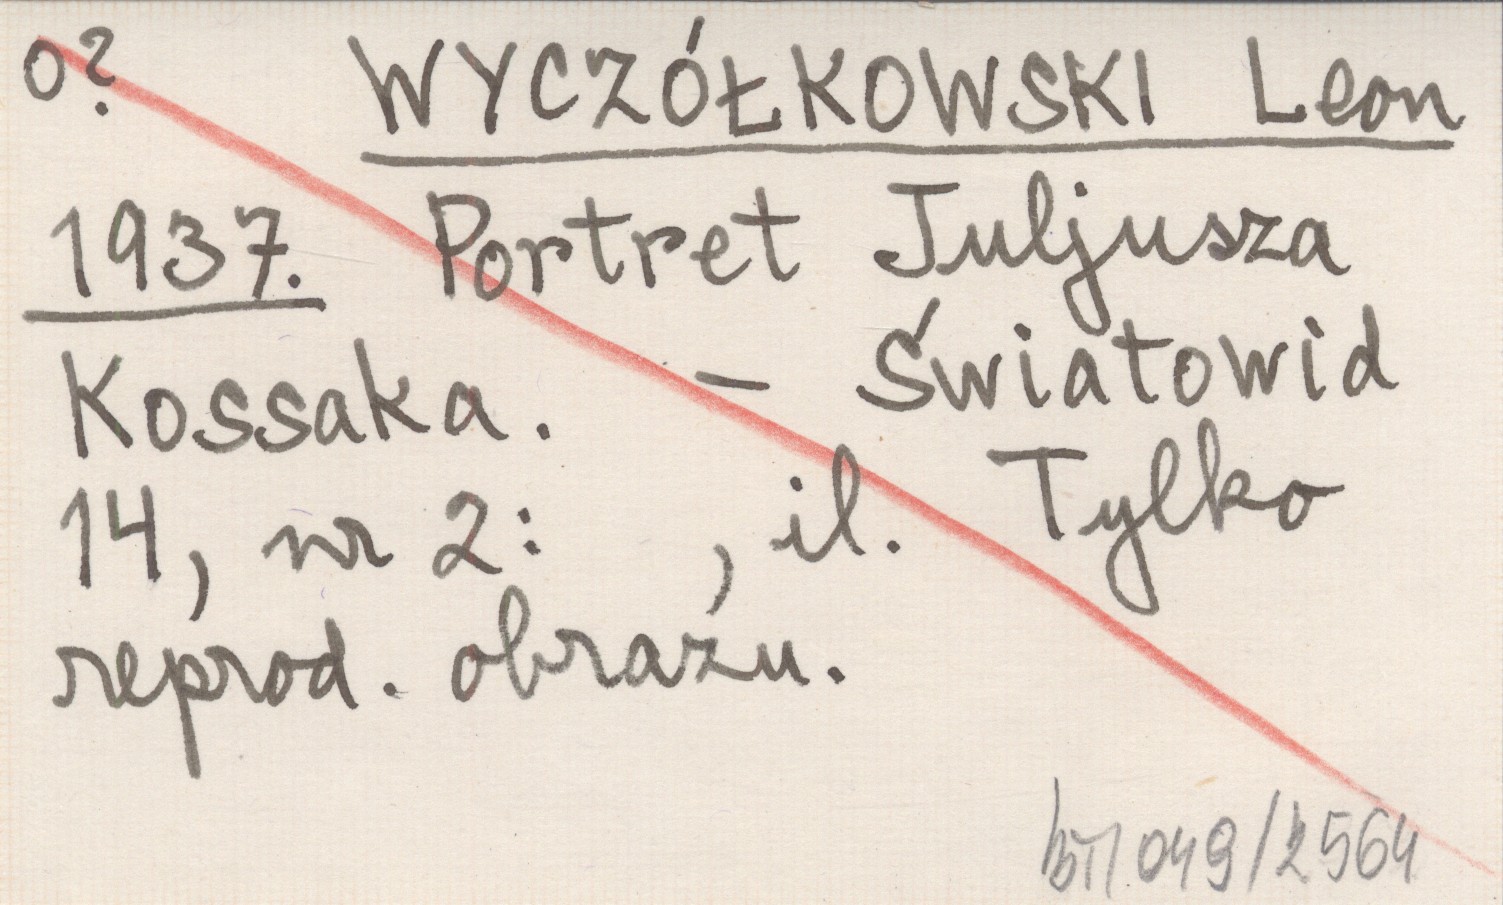 o? WYCZÓŁKOWSKI Leon
1937. Portret Juljusza
Kossaka. – Światowid
14, nr 2: , il. Tylko
reprod. obrazu.
049/2564